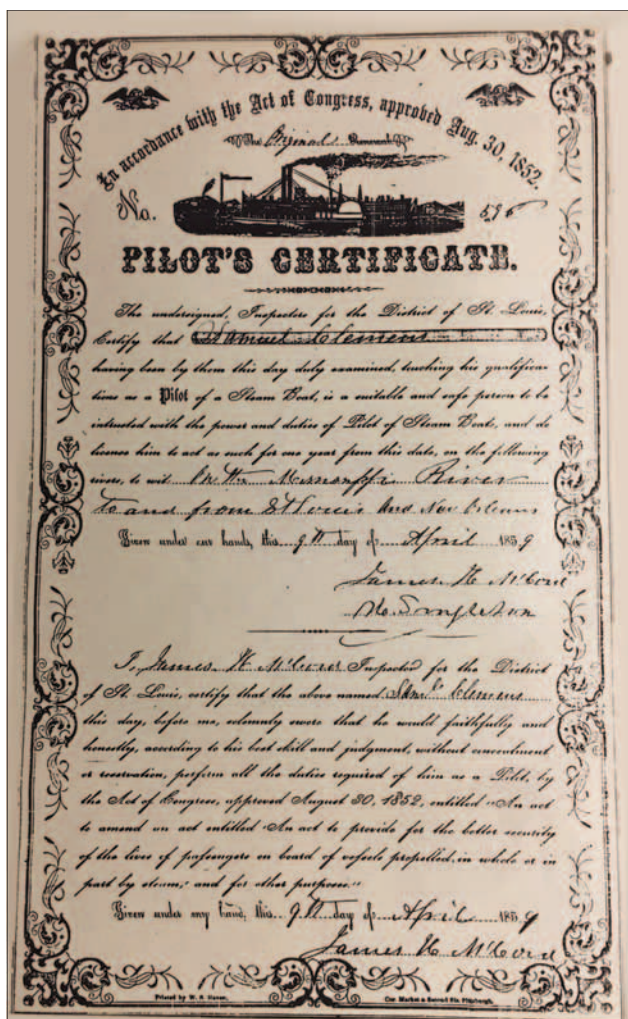 In accordance with the Act of Congress, approved Aug. 30, 1852.
The Original Renewed
No. 596
PILOT'S CERTIFICATE.
The undersigned, Inspectors for the District of St. Louis,
Certify that Samuel Clemens
having been by them this day duly examined, touching his qualifica-
tions as a Pilot of a Steam Boat, is a suitable and safe person to be
intrusted with the power and duties of Pilot of Steam Boats, and do
license him to act as such for one year from this date, on the following
rivers, to wit On the Mississippi River
to and from St Louis and New Orleans
Given under our hands, this 9th day of April 1859
James H McCord
H. Singleton
I, James H McCord Inspector for the District
of St. Louis, certify that the above named Saml Clemens
this day, before me, solemnly swore that he would faithfully and
honestly, according to his best skill and judgment, without concealment
or reservation, perform all the duties required of him as a Pilot, by
the Act of Congress, approved August 30, 1852, entitled "An act
to amend an act entitled "An act to provide for the better security
of the lives of passengers on board of vessels propelled, in whole or in
part by steam," and for other purposes."
Given under my hand, this 9th day of April 1859
James H McCord
Printed by W. S. Haven, Cor. Market & Second Sts. Pittsburgh.